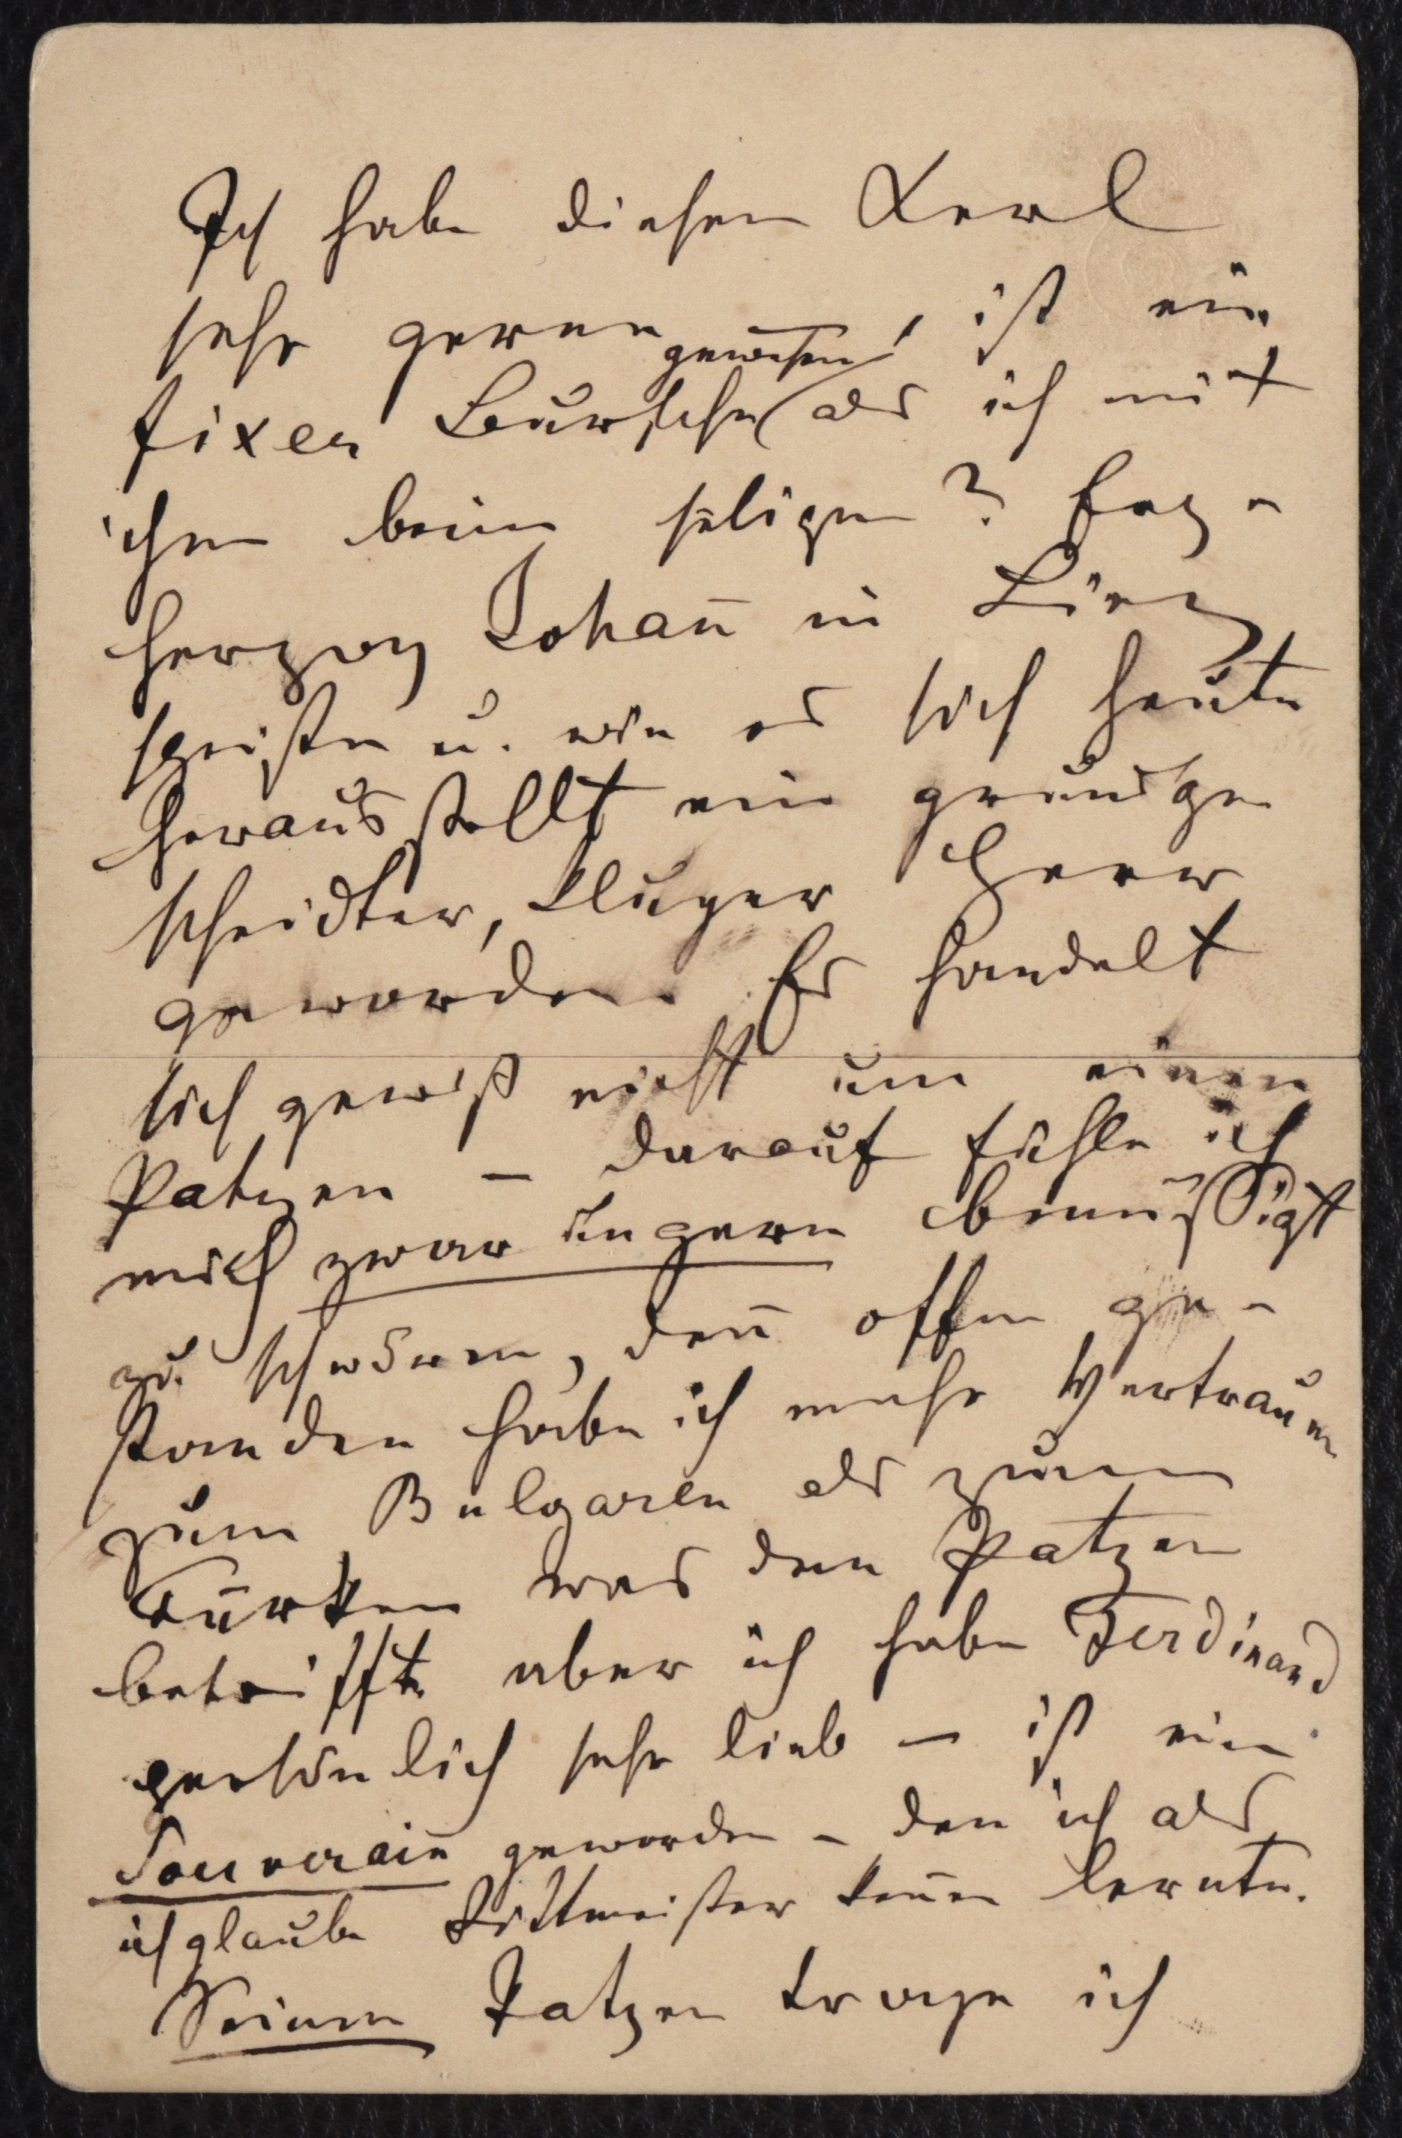 Ich habe diesen Kerl
sehr geren, ist ein
gewesen
fixer Bursche als ich mit
ihm beim seligen ? Erz-
herzog Johan̄ in Linz
speiste u. wie es sich heute
herausstellt ein grundge
scheidter, kluger Herr
geworden. Es handelt
sich gewiß nicht um einen
Patzen – darauf fühle ich
mich zwar ungern bemüßigt
zu schwören, den̄ offen ge-
standen habe ich mehr Vertrauen
zum Bulgaren als zum
Türken was den Patzen
betrifft aber ich habe Ferdinand
persönlich sehr lieb – ist ein
Souverain geworden – den ich als
ich glaube Rittmeister ken̄en lernte.
Seinen Patzen trage ich